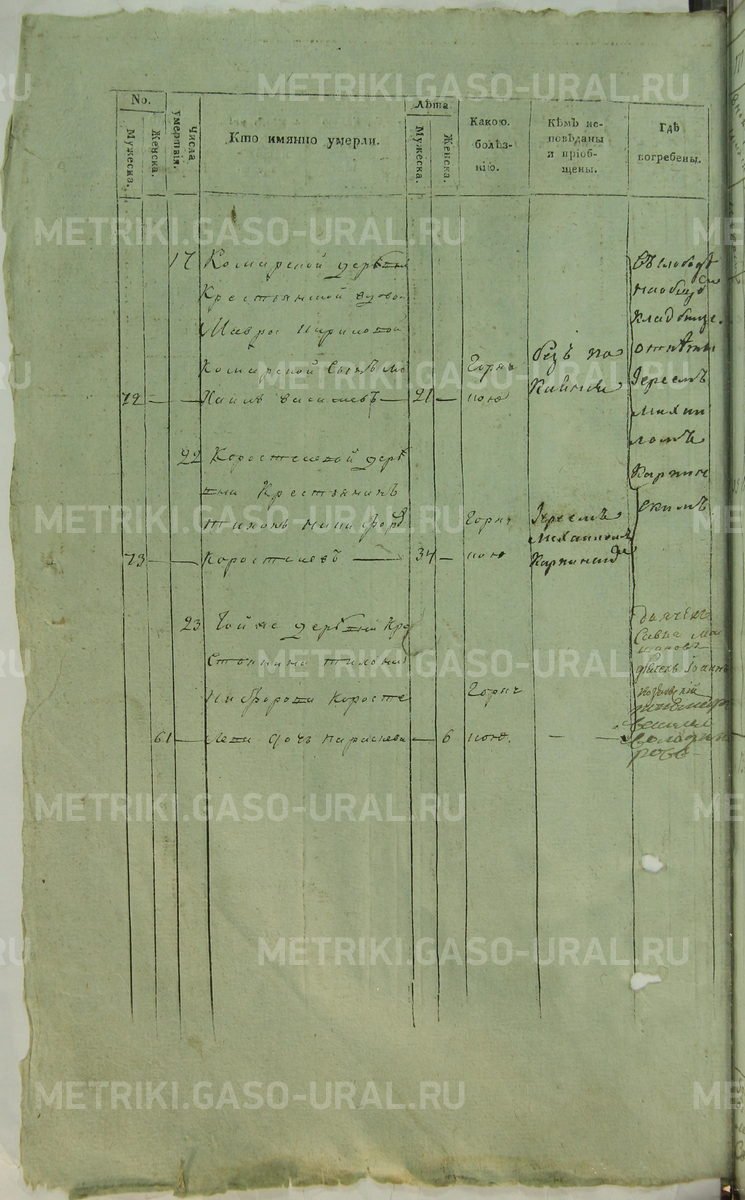 No.
Мужеска.
Женска.
Числа умертвія.
Кто имянно умерли.
Лѣта.
Мужеска.
Женска.
Какою.
болѣз-
нію.
Кѣмъ ис-
повѣданы
и пріоб-
щены.
Гдѣ
погребены.
17 Комарской дерѣвни
Крестьянской вдовы
Мавры Кириловой
Комарской сынъ
72 — Василевъ — 21 —
Горяч
кою
безъ по
каянія
Въ слободѣ
на общемъ
кладбище.
отпѣты
Іереемъ
Михаи
ломъ
Карпин
скимъ
22 Коростелевой дерѣ
вни Крестьянинъ
Тихонъ Никифоровъ
73 — Коростелевъ — 34 —
Горяч
кою
Іереемъ
Михаиломъ
Карпинским
23 Той же деревни Кре
стьянина Тихона
Никифорова Коросте
61 — лева дочь — 6
Горяч
кою.
Дьячекъ
Савва
Іоаннъ
METRIKI.GASO-URAL.RU